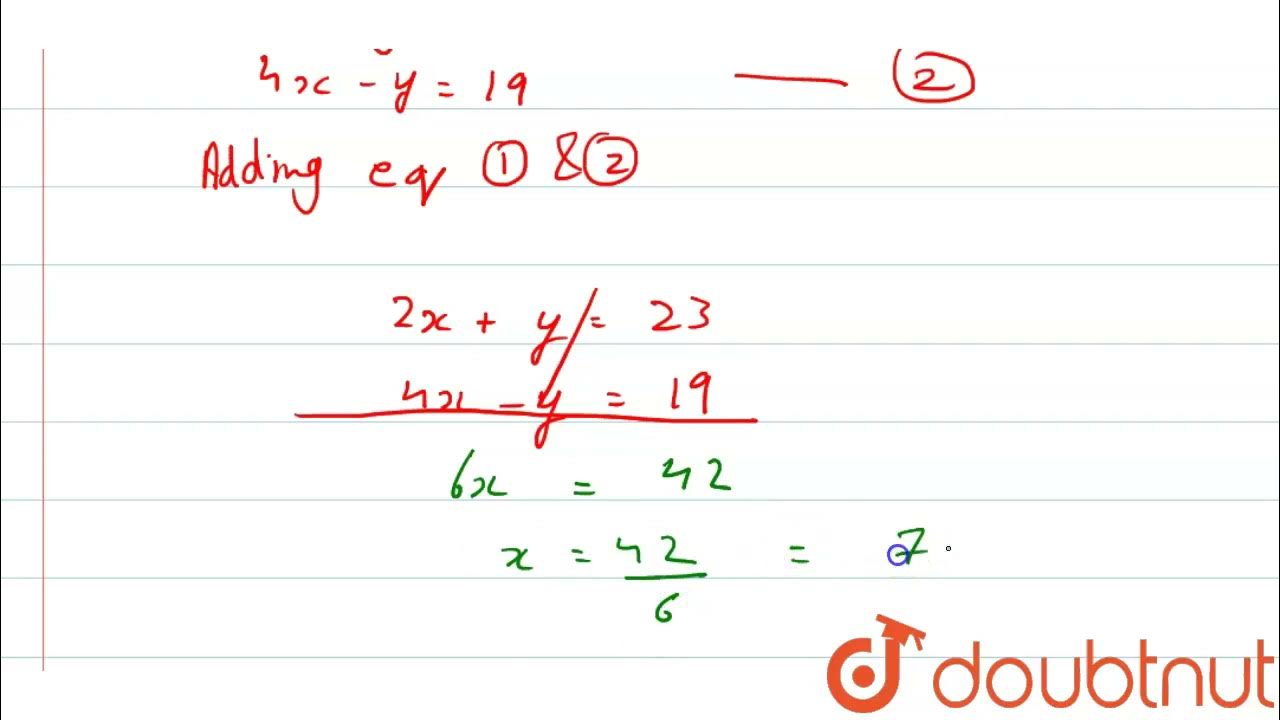 4x - y = 19 —— ②
Adding eq ① & ②
2x + y = 23
4x - y = 19
6x = 42
x = 42/6 = 7
doubtnut